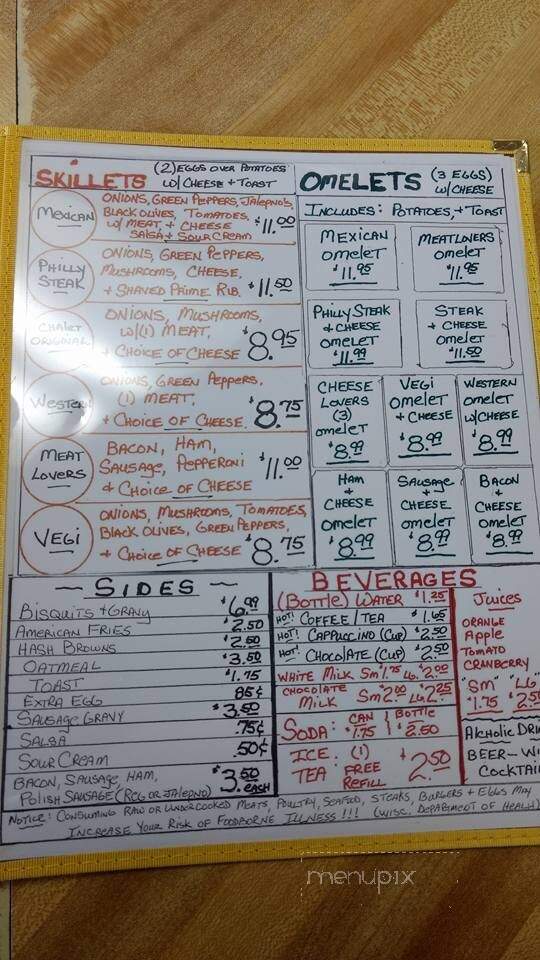 SKILLETS (2) EGGS OVER POTATOES
W/ CHEESE + TOAST
MEXICAN
ONIONS, GREEN PEPPERS, JALEPNO'S,
BLACK OLIVES, TOMATOES,
W/ MEAT, + CHEESE
SALSA + SOUR CREAM $11.00
PHILLY
STEAK
ONIONS, GREEN PEPPERS,
MUSHROOMS, CHEESE,
+ SHAVED PRIME RIB. $11.50
CHALET
ORIGINAL
ONIONS, MUSHROOMS,
W/(1) MEAT,
+ CHOICE OF CHEESE $8.95
WESTERN
ONIONS, GREEN PEPPERS,
(1) MEAT,
+ CHOICE OF CHEESE. $8.75
MEAT
LOVERS
BACON, HAM,
SAUSAGE, PEPPERONI
+ CHOICE OF CHEESE $11.00
VEGI
ONIONS, MUSHROOMS, TOMATOES,
BLACK OLIVES, GREEN PEPPERS,
+ CHOICE OF CHEESE $8.75
OMELETS (3 EGGS)
W/CHEESE
INCLUDES: POTATOES, + TOAST
MEXICAN
OMELET
$11.95
MEATLOVERS
OMELET
$11.95
PHILLY STEAK
+ CHEESE
OMELET
$11.99
STEAK
+ CHEESE
OMELET
$11.50
CHEESE
LOVERS
(3)
OMELET
$8.99
VEGI
OMELET
+ CHEESE
$8.99
WESTERN
OMELET
W/CHEESE
$8.99
HAM
+
CHEESE
OMELET
$8.99
SAUSAGE
+
CHEESE
OMELET
$8.99
BACON
+
CHEESE
OMELET
$8.99
~ SIDES ~
BISQUITS + GRAVY $6.99
AMERICAN FRIES $2.50
HASH BROWNS $2.50
OATMEAL $3.50
TOAST $1.75
EXTRA EGG 85¢
SAUSAGE GRAVY $3.50
SALSA .75¢
SOUR CREAM .50¢
BACON, SAUSAGE, HAM,
POLISH SAUSAGE (REG OR JALEPNO) $3.50 EACH
BEVERAGES
(BOTTLE) WATER $1.25
HOT! COFFEE / TEA $1.65
HOT! CAPPUCCINO (CUP) $2.50
HOT! CHOCOLATE (CUP) $2.50
WHITE MILK SM $1.75 LG. $2.00
CHOCOLATE
MILK SM $2.00 LG $2.25
SODA: CAN $1.75 BOTTLE $2.50
ICE TEA: (1) FREE REFILL $2.50
JUICES
ORANGE
APPLE
TOMATO
CRANBERRY
"SM" "LG"
$1.75 $2.50
ALCHOLIC
BEER-
NOTICE: CONSUMING RAW OR UNDERCOOKED MEATS, POULTRY, SEAFOOD, STEAKS, BURGERS + EGGS MAY
INCREASE YOUR RISK OF FOODBORNE ILLNESS!!! (WISC. DEPARTMENT OF HEALTH)
menupix